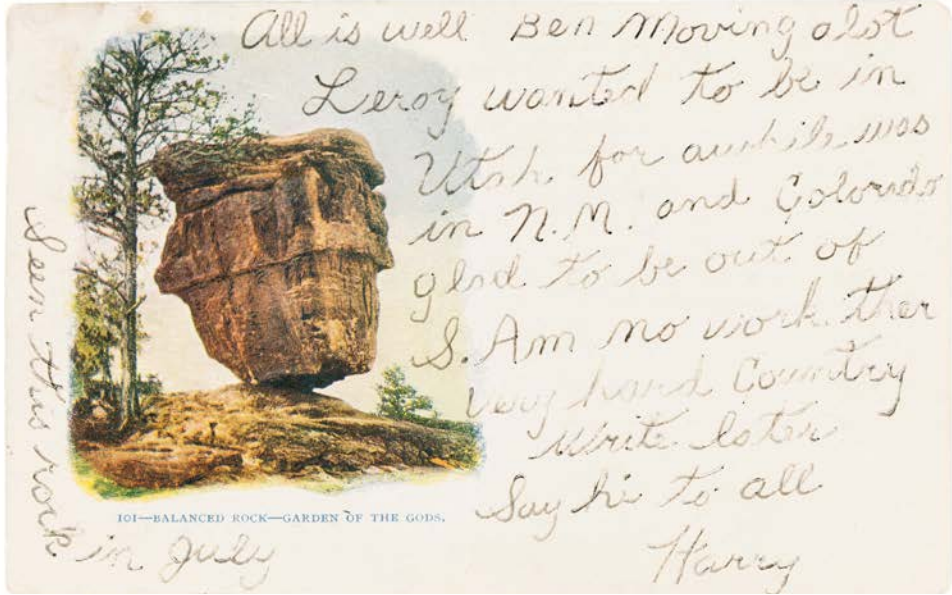 All is well Ben Moving alot
Leroy wanted to be in
Utah for awhile was
in N.M. and Colorado
glad to be out of
S. Am no work ther
very hard Country
write later
Say hi to all
Harry
Seen this rock in July
101—BALANCED ROCK—GARDEN OF THE GODS.